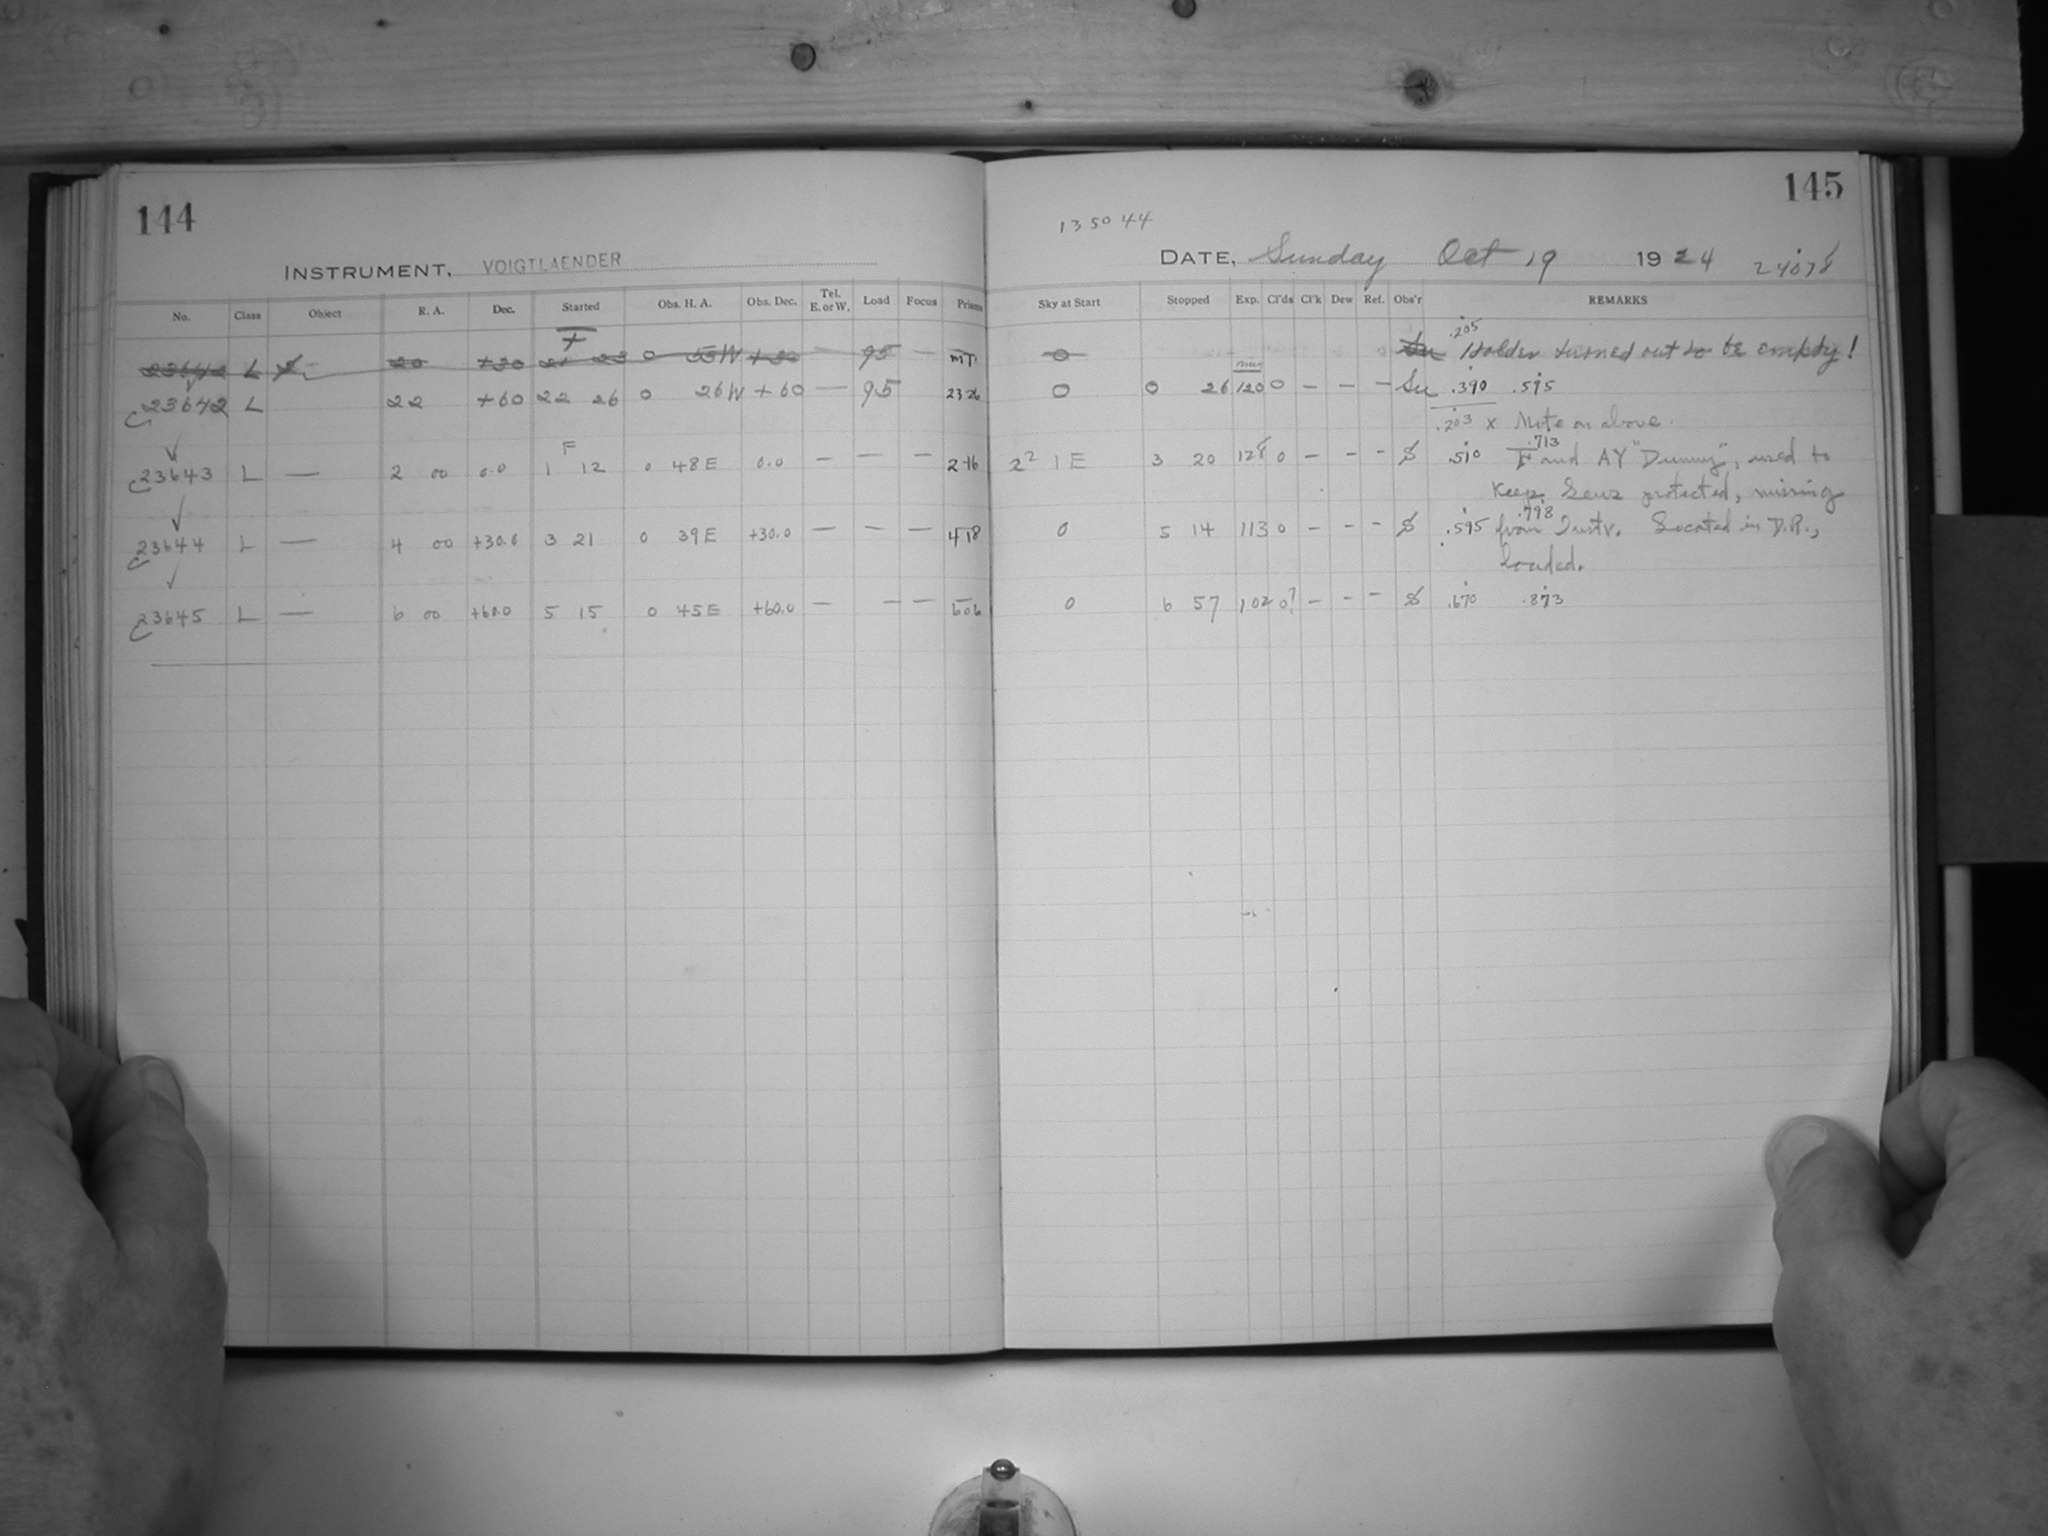 144
145
13 50 44
INSTRUMENT, VOIGTLAENDER
DATE, Sunday Oct 19 1924 24078
No. Class Object R. A. Dec. Started Obs. H. A. Obs. Dec. Tel. E. or W. Load Focus Prisms Sky at Start Stopped Exp. Cl'ds Cl'k Dew Ref. Obs'r REMARKS
23642 L 20 +30 21 23 0 55W +30 — 95 — MT. 0 Su .205 Holder turned out to be empty!
23642 L 22 +60 22 26 0 26W +60 — 95 — 2326 0 0 26 120 0 — — — Su .390 .595
.203 x Note on above.
F .713
23643 L — 2 00 0.0 1 12 0 48E 0.0 — — — 216 2² 1E 3 20 128 0 — — — S .510 F and AY "Dummy", used to
Keep Lens protected, missing
.798
23644 L — 4 00 +30.0 3 21 0 39E +30.0 — — — 418 0 5 14 113 0 — — — S .595 from Instr. Located in D.R.,
loaded.
23645 L — 6 00 +60.0 5 15 0 45E +60.0 — — — 606 0 6 57 102 0? — — — S .670 .873